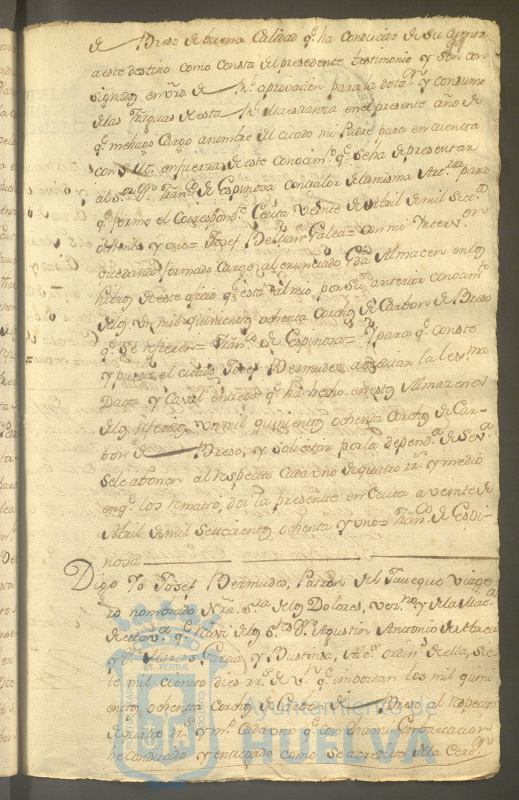 de Breso de buena Calidad q.e ha Conducido de su Cuenta
a este destino como Consta del presedente testimonio y son con
signados en vrd. de aprovacion para la dota.n y consumo
de las fraguas de esta R.l Maestranza en el presente año de
q.e me hago Cargo a nombre del citado mi Padre para en cuenta
con S.M. en fuerza de este conocim.to q.e se ha de presentar
al S.or D.n Fran.co de Espinosa Contralor de la misma para
q.e forme el Correspon.te Ceuta veinte de Abril de mil Set.s
ochenta y uno= Josef Beltran Galea= con mi Interv.on
quedando formado Cargo al enunciado Gda Almacen en los
libros de este oficio q.e está al mio, por su anterior conocim.to
de los un mil quinientos ochenta Couchos de Carbon de Breso
q.e se refieren= Fran.co de Espinosa= Y para q.e conste
y pueda el citado Josef Bermudez acreditar la lexitima
Data y Caval entrega q.e ha hecho en estos Almazenes
de los referidos un mil quinientos ochenta Couchos de Car-
bon de Breso, y solicitar por la depend.a de Sev.a
se le abonen al respecto Cada uno de quatro r.s y medio
en q.e los remató, doi la presente en Ceuta a veinte de
Abril de mil Setecientos ochenta y uno= Fran.co de Espi-
nosa
Digo Yo Josef Bermudez, Patron del Javeque Viage
ro nombrado Nra. S.ra de los Dolores, vez.no y de la Mat.a
de esta q.e reciví de los S.res D.n Agustin Antonio de Abreu
y D.n Marcos Garcia y Bustinza, ordin.s de ella, Sie
te mil ciento diez r.s de v.n q.e importan los mil quini
entos ochenta Couchos de Carbon de Breso al respecto
de quatro r.s y m.o Cada uno q.e con dha mi Embarcacion
he conducido y entregado como se acredita de la Cert.on
Ayuntamiento de
HUELVA